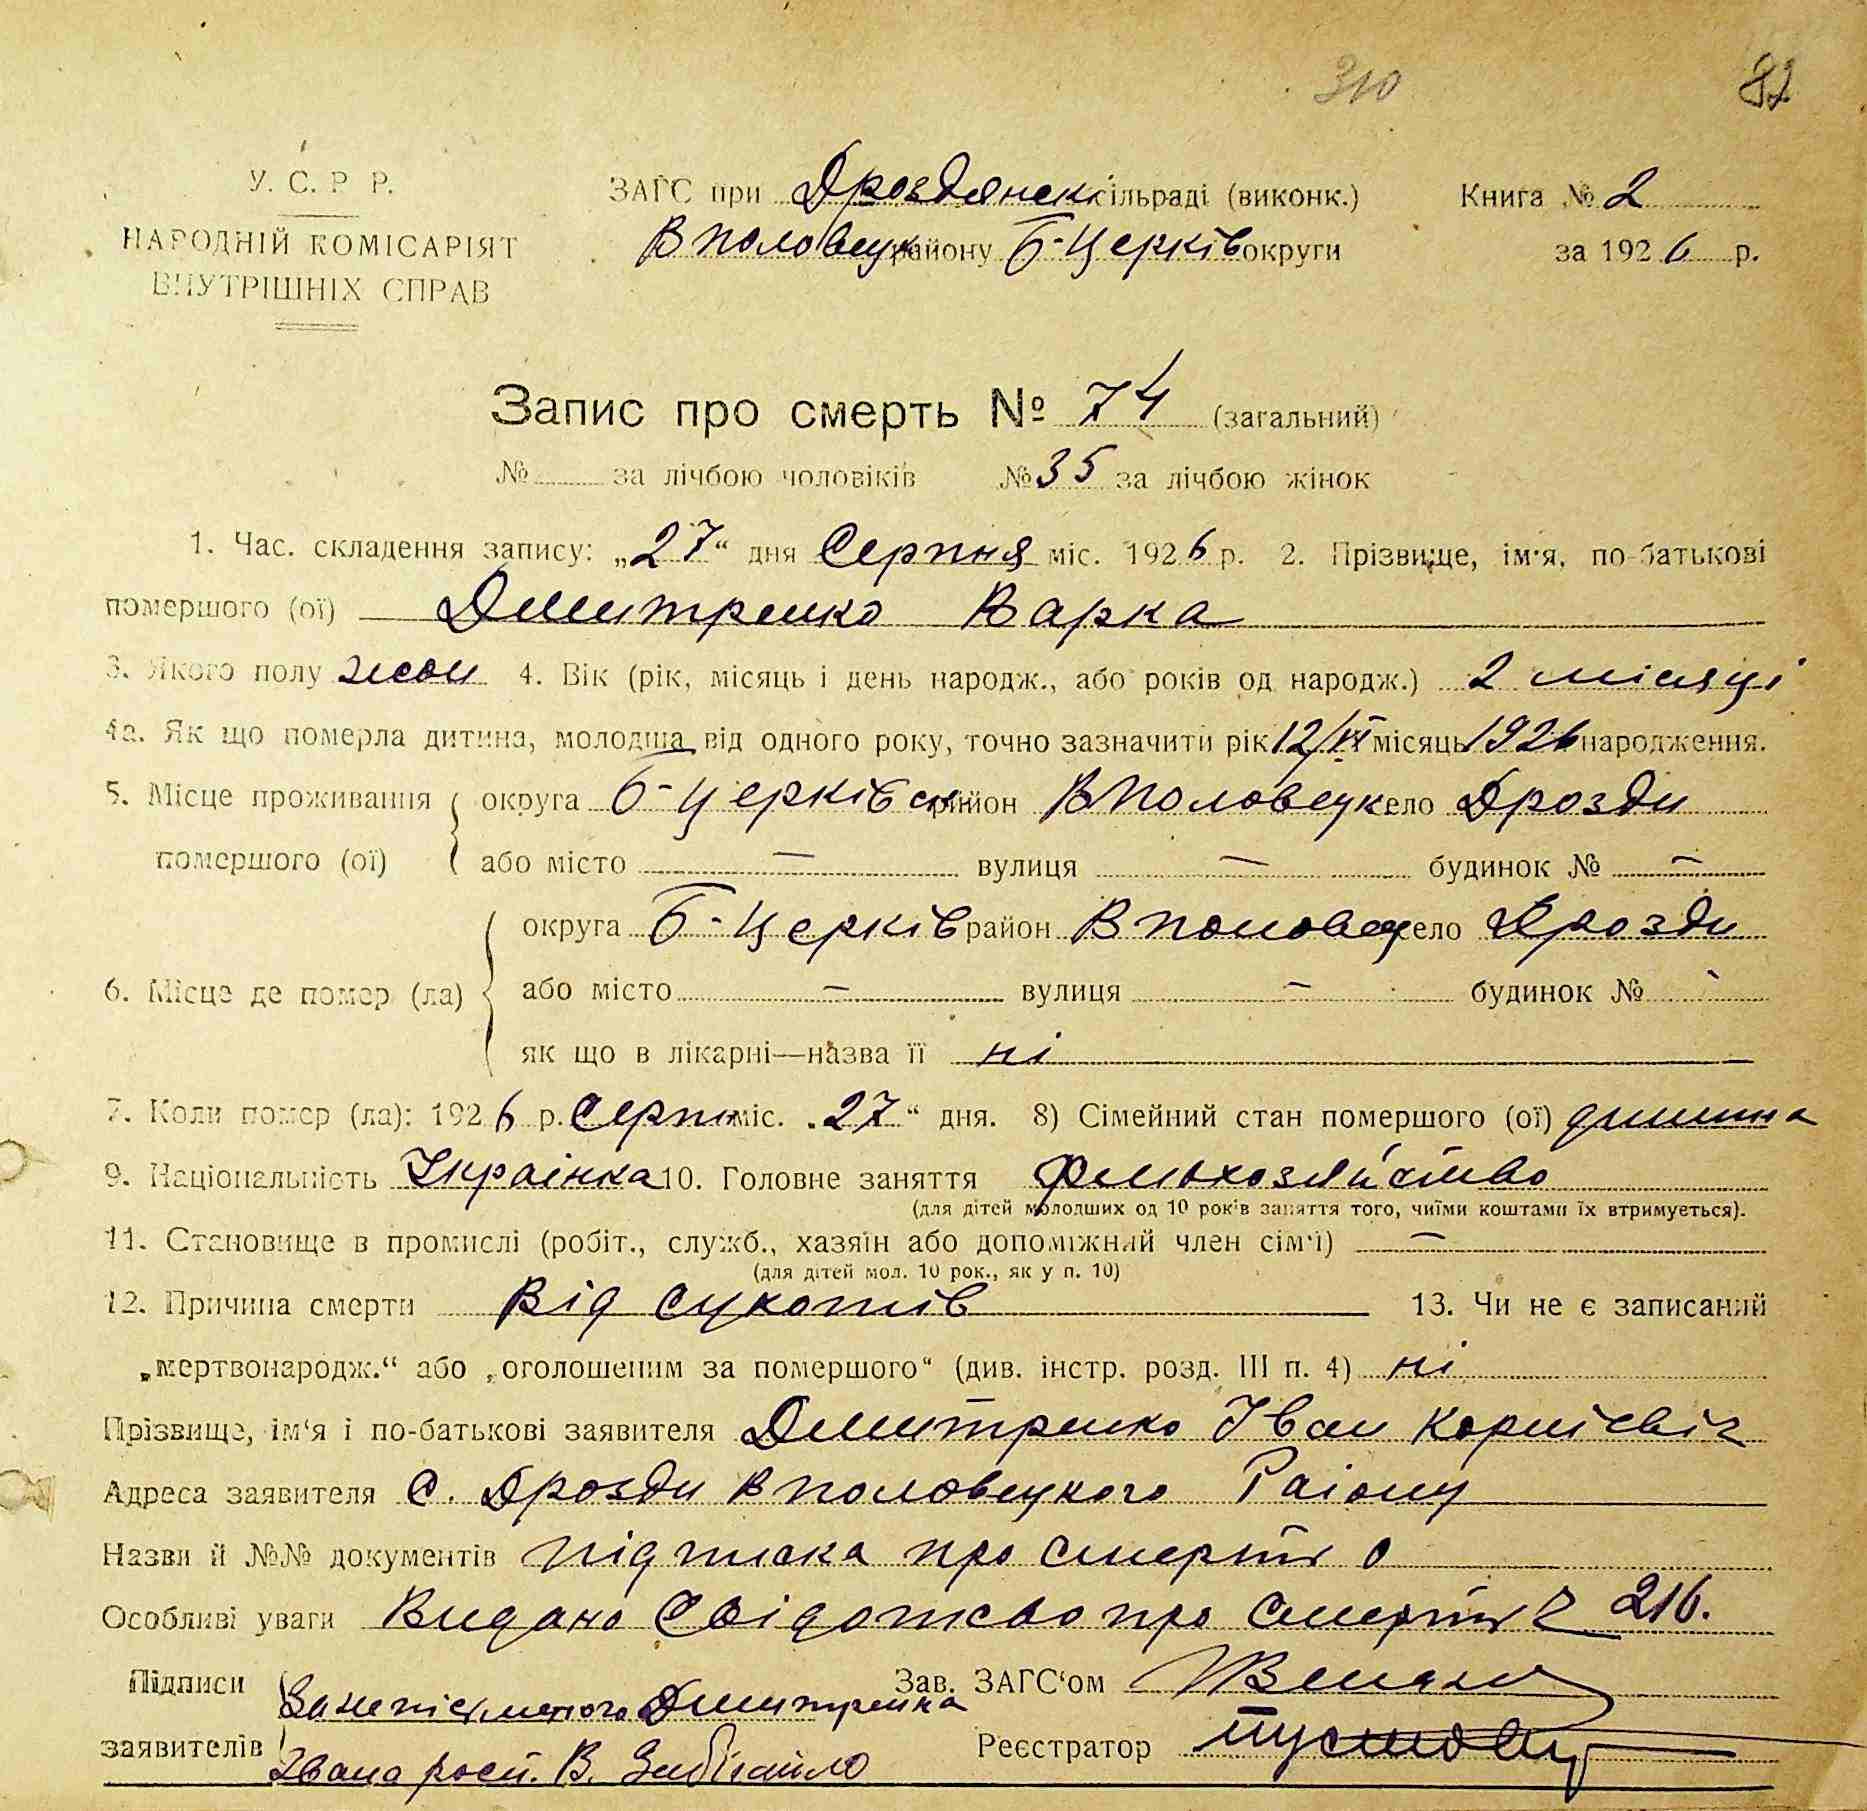 310 82
У. С. Р Р.
НАРОДНІЙ КОМІСАРІЯТ
ВНУТРІШНІХ СПРАВ
ЗАГС при Дроздянск сільраді (виконк.) Книга № 2
В половецк району Б-Церків округи за 1926 р.
Запис про смерть № 74 (загальний)
№ за лічбою чоловіків № 35 за лічбою жінок
1. Час. складення запису: „27“ дня Серпня міс. 1926 р. 2. Прізвище, ім'я, по-батькові
помершого (ої) Дмитренко Варка
3. Якого полу жон 4. Вік (рік, місяць і день народж., або років од народж.) 2 місяці
4а. Як що померла дитина, молодша від одного року, точно зазначити рік 12/VI місяць 1926 народження.
5. Місце проживання округа Б-Церківськ район В половецк село Дрозди
помершого (ої) або місто — вулиця — будинок № —
округа Б-Церків район В половец село Дрозди
6. Місце де помер (ла) або місто — вулиця — будинок №
як що в лікарні—назва її ні
7. Коли помер (ла): 1926 р. Серпня міс. „27“ дня. 8) Сімейний стан помершого (ої) дитина
9. Національність Українка 10. Головне заняття
(для дітей молодших од 10 рок'в заняття того, чиїми коштами їх втримується).
11. Становище в промислі (робіт., служб., хазяїн або допоміжний член сім'ї) —
(для дітей мол. 10 рок., як у п. 10)
12. Причина смерти Від сухотів 13. Чи не є записаний
„мертвонародж.“ або „оголошеним за помершого“ (див. інстр. розд. III п. 4) ні
Прізвище, ім'я і по-батькові заявителя Дмитренко Іван Корнієвіч
Адреса заявителя С. Дрозди В половецкого Раіону
Назви й №№ документів підписка про смерть
Особливі уваги Видано Свідотство про смерть 216.
Підписи Зав. ЗАГС'ом
заявителів Дмитренка Реєстратор
Івана росп. В.